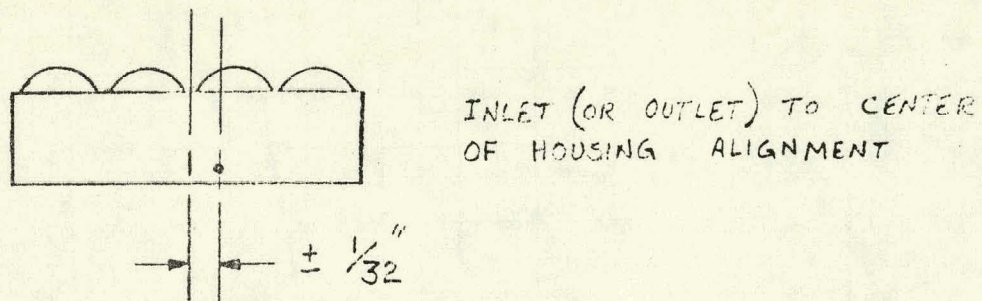 INLET (OR OUTLET) TO CENTER
OF HOUSING ALIGNMENT
± 1/32"